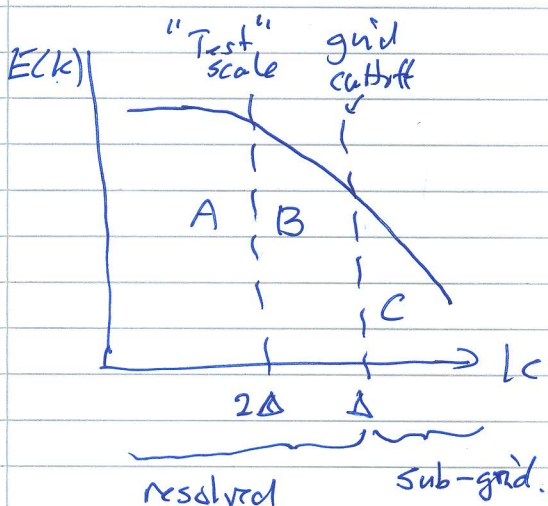 "Test" scale
grid cuttoff
E(k)
A
B
C
k
2Δ
Δ
resolved
sub-grid.